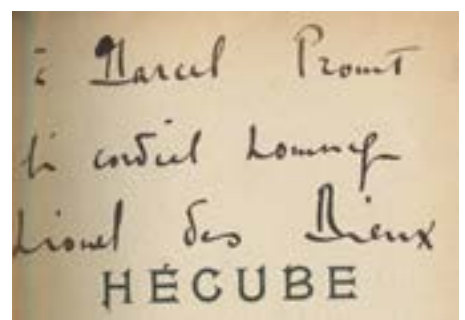 à Marcel Proust
cordial hommage
Lionel des Rieux
HÉCUBE